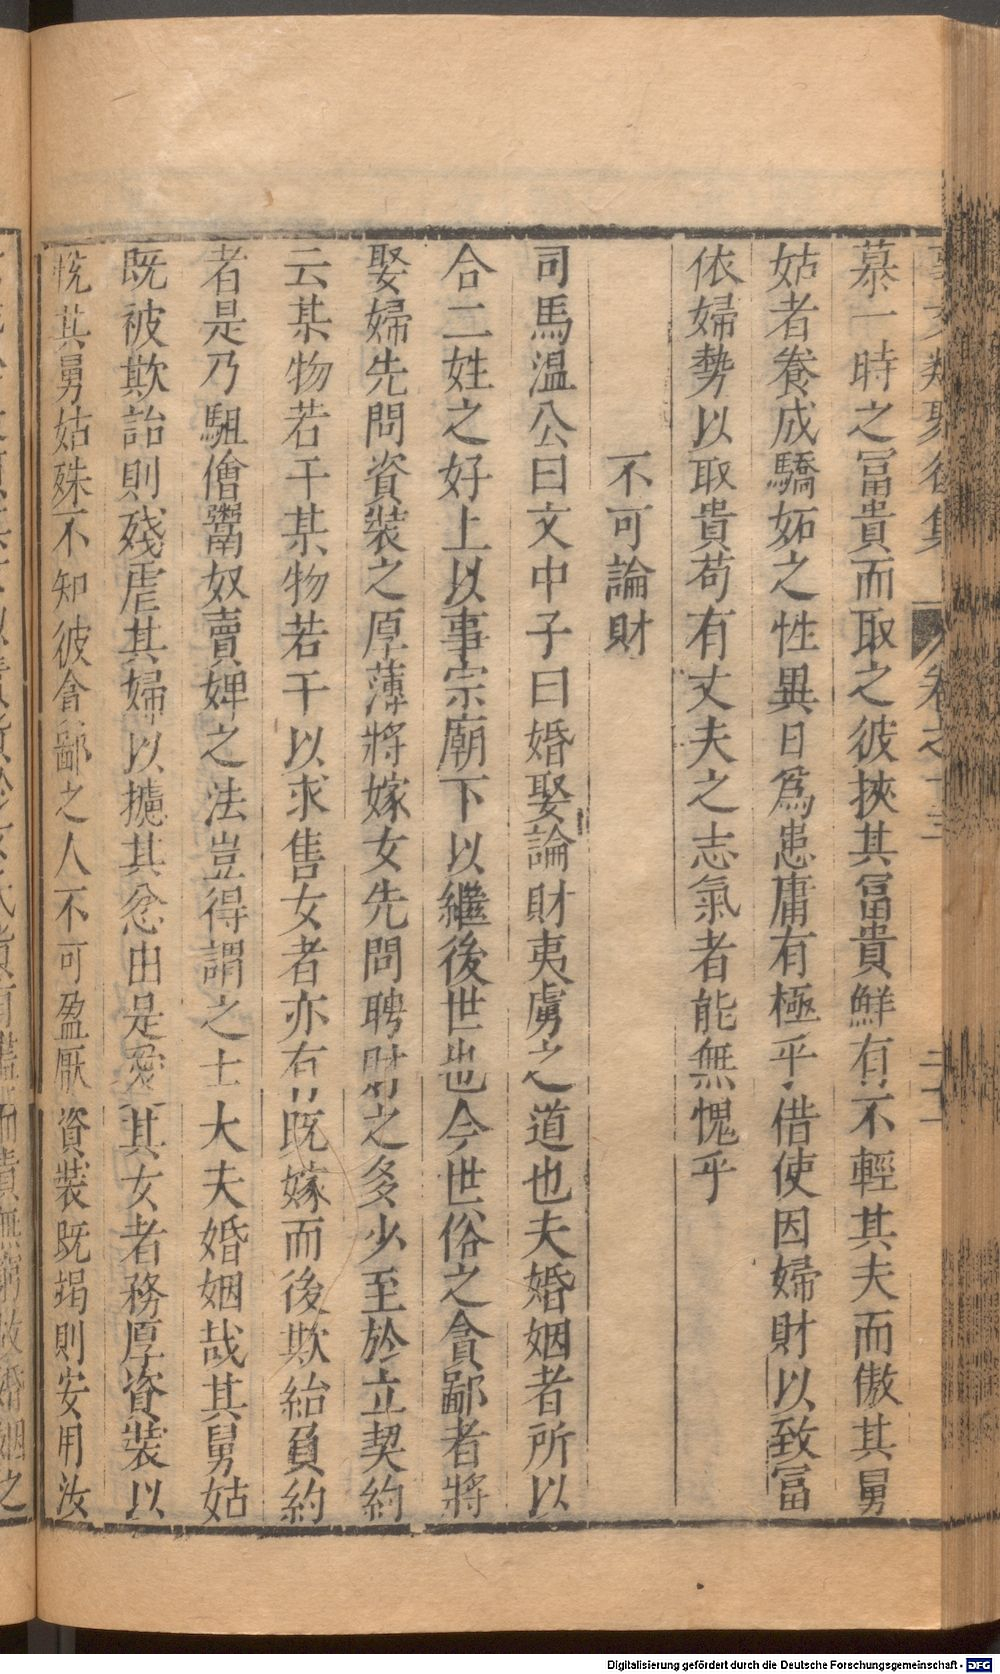 事文類聚後集 卷之十三
慕一時之冨貴而取之彼挾其冨貴鮮有不輕其夫而傲其舅
姑者養成驕妬之性異日爲患庸有極乎借使因婦財以致冨
依婦勢以取貴苟有丈夫之志氣者能無愧乎
不可論財
司馬温公曰文中子曰婚娶論財夷虜之道也夫婚姻者所以
合二姓之好上以事宗廟下以繼後世也今世俗之貪鄙者將
娶婦先問資裝之厚薄將嫁女先問聘財之多少至於立契約
云某物若干某物若干以求售女者亦有既嫁而後欺紿負約
者是乃駔儈鬻奴賣婢之法豈得謂之士大夫婚姻哉其舅姑
既被欺詒則殘虐其婦以攄其忿由是愛其女者務厚資裝以
悅其舅姑殊不知彼貪鄙之人不可盈厭資裝既竭則安用汝
Digitalisierung gefördert durch die Deutsche Forschungsgemeinschaft - DFG